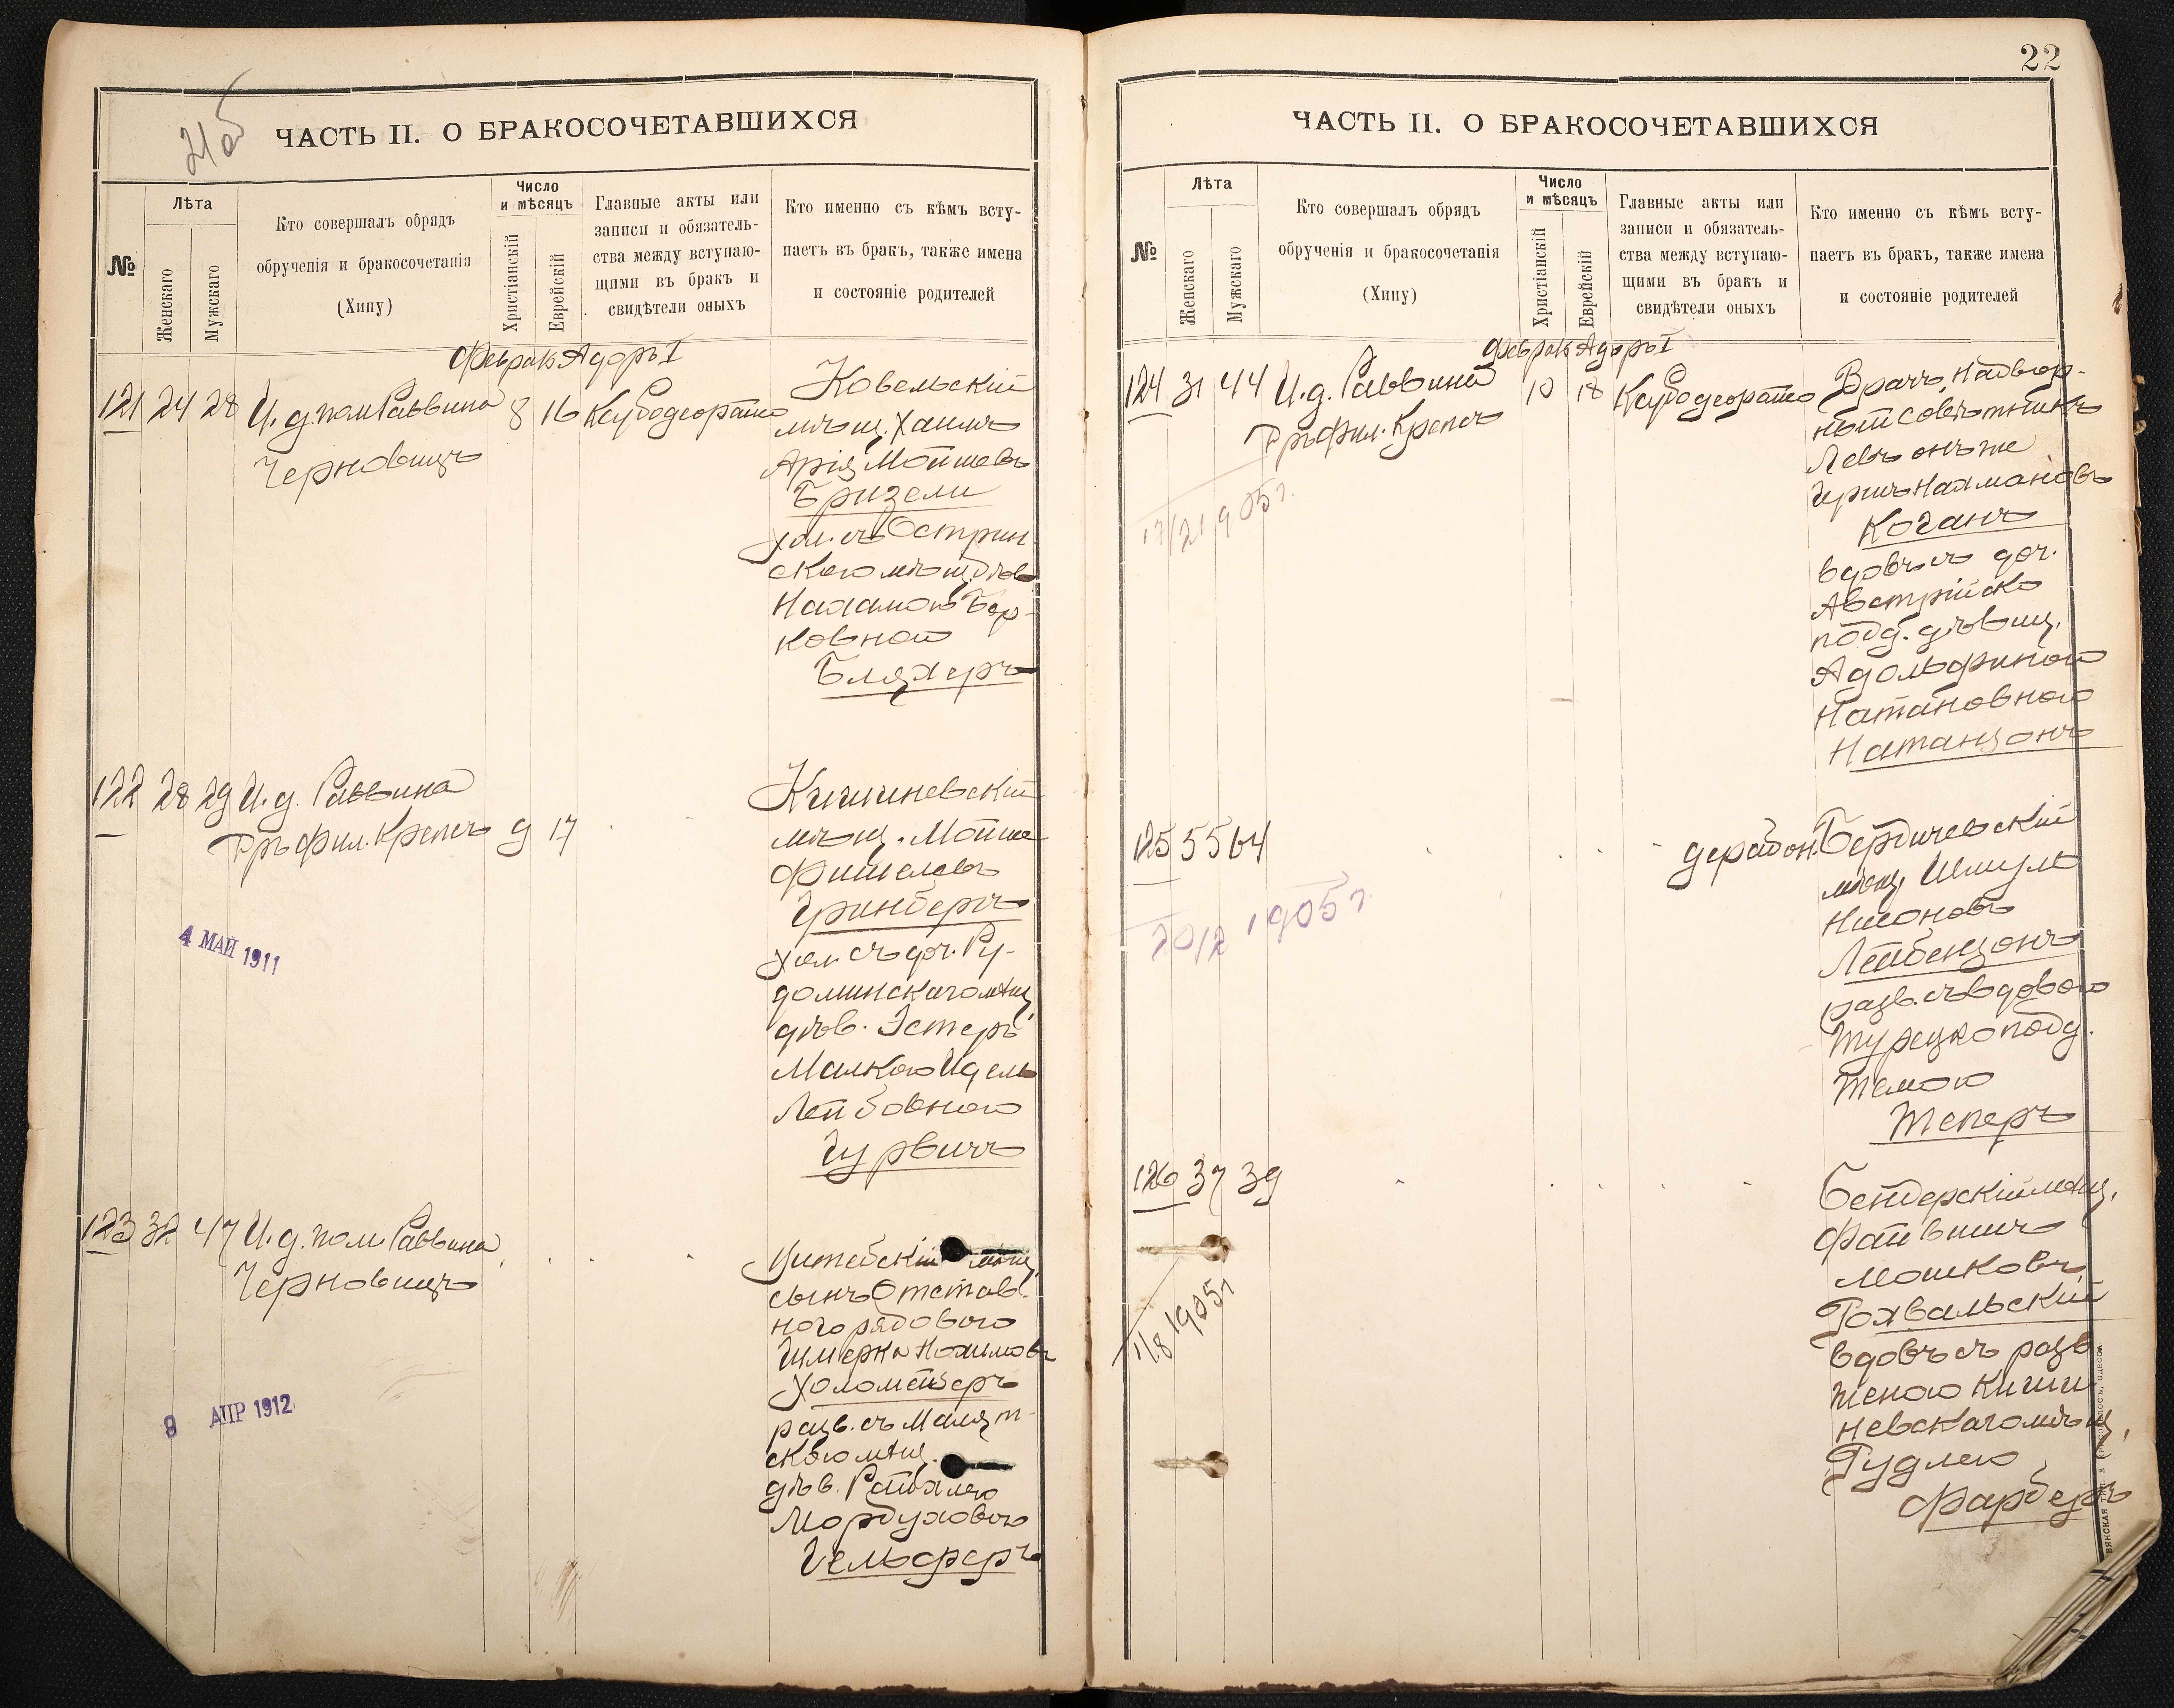 21об
ЧАСТЬ II. О БРАКОСОЧЕТАВШИХСЯ
№
Лѣта
Женскаго
Мужскаго
Кто совершалъ обрядъ
обрученія и бракосочетанія
(Хипу)
Число
и мѣсяцъ
Христіанскій
Еврейскій
Главные акты или
записи и обязатель-
ства между вступаю-
щими въ бракъ и
свидѣтели оныхъ
Кто именно съ кѣмъ всту-
паетъ въ бракъ, также имена
и состояніе родителей
Феврал Адоръ I
121 24 28 И. д. пом Раввина 8 16
Черновицъ
Ковельскій
мѣщ. Хаимъ
Арія Мойшевъ
Бризели
хол. съ Острин
скою мѣщ. дѣв
Нахамою Бер-
ковною
Бляхеръ
122 28 29 И. д. Раввина
Дръ Фил. Крепсъ 9 17
Кишиневскій
мѣщ. Мойше
Фишелевъ
Гринбергъ
хол. съ доч. Ру-
доминскаго мѣщ.
дѣв. Эстеръ
Малкою Идель
Лейбовною
Гурвичъ
4 МАЙ 1911
123 32 47 И. д. пом Раввина
Черновицъ
Витебскій мѣщ.
сынъ Отстав-
ного рядового
Шмерка Нохимовъ
разв. съ
скою мѣщ.
дѣв.
Мордуховою
Гельферъ
9 АПР 1912
22
ЧАСТЬ II. О БРАКОСОЧЕТАВШИХСЯ
№
Лѣта
Женскаго
Мужскаго
Кто совершалъ обрядъ
обрученія и бракосочетанія
(Хипу)
Число
и мѣсяцъ
Христіанскій
Еврейскій
Главные акты или
записи и обязатель-
ства между вступаю-
щими въ бракъ и
свидѣтели оныхъ
Кто именно съ кѣмъ всту-
паетъ въ бракъ, также имена
и состояніе родителей
Феврал Адоръ I
124 31 44 И. д. Раввина 10 18
Дръ Фил. Крепсъ
Врачъ, Надвор-
ный совѣтникъ
Левъ онъ же
Гершъ Нахмановъ
Коганъ
вдовъ съ доч.
Австрійско
подд. дѣвиц.
Адольфиною
Натановною
Натанзонъ
17/2 1905 г.
125 55 64
Бердичевскій
мѣщ. Шмуль
Лейбензонъ
разв. съ вдовою
Турецко подд.
Теперъ
20/2 1905 г.
126 37 39
Бендерскій мѣщ.
Файвишъ
Мошковъ
Рохвальскій
вдовъ съ разв.
женою Киши
невскаго мѣщ.
Гудлею
Фарберъ
1905 г.